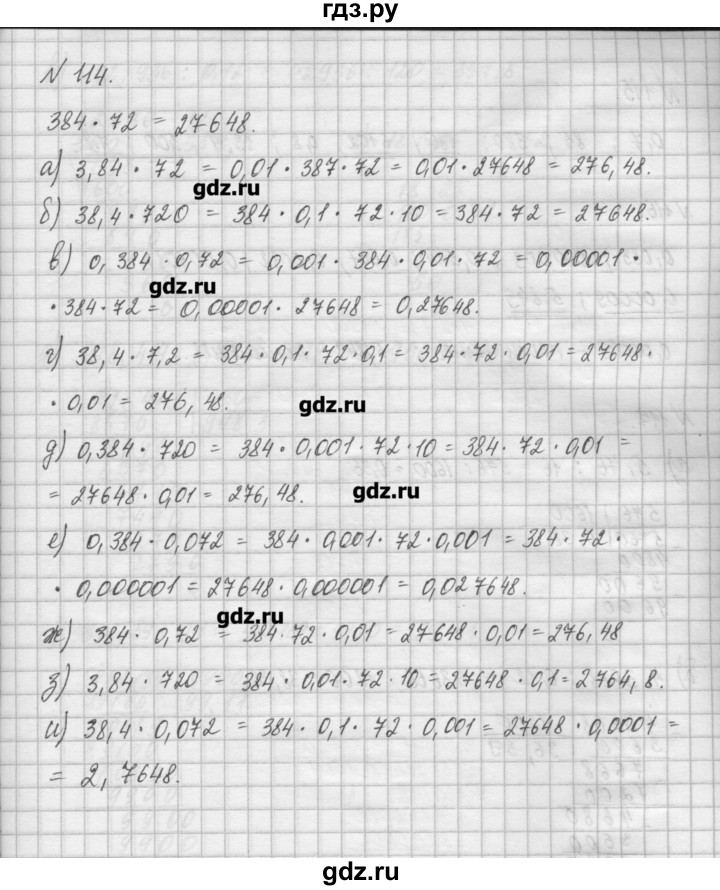 гдз.ру
N 114.
384 · 72 = 27648.
а) 3,84 · 72 = 0,01 · 387 · 72 = 0,01 · 27648 = 276,48.
gdz.ru
б) 38,4 · 720 = 384 · 0,1 · 72 · 10 = 384 · 72 = 27648.
в) 0,384 · 0,72 = 0,001 · 384 · 0,01 · 72 = 0,00001 ·
gdz.ru
· 384 · 72 = 0,00001 · 27648 = 0,27648.
г) 38,4 · 7,2 = 384 · 0,1 · 72 · 0,1 = 384 · 72 · 0,01 = 27648 ·
· 0,01 = 276,48.
gdz.ru
д) 0,384 · 720 = 384 · 0,001 · 72 · 10 = 384 · 72 · 0,01 =
= 27648 · 0,01 = 276,48.
gdz.ru
е) 0,384 · 0,072 = 384 · 0,001 · 72 · 0,001 = 384 · 72 ·
· 0,000001 = 27648 · 0,000001 = 0,027648.
gdz.ru
ж) 384 · 0,72 = 384 · 72 · 0,01 = 27648 · 0,01 = 276,48
з) 3,84 · 720 = 384 · 0,01 · 72 · 10 = 27648 · 0,1 = 2764,8.
и) 38,4 · 0,072 = 384 · 0,1 · 72 · 0,001 = 27648 · 0,0001 =
= 2,7648.
gdz.ru